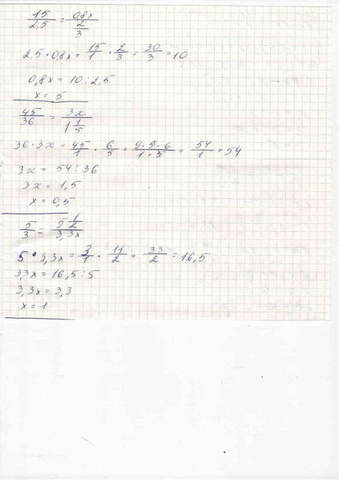 15/2,5 = 0,8x/(2/3)
2,5 · 0,8x = 15/1 · 2/3 = 30/3 = 10
0,8x = 10 : 2,5
x = 5
45/36 = 3x/(1 1/5)
36 · 3x = 45/1 · 6/5 = 9·5·6/1·5 = 54/1 = 54
3x = 54 : 36
3x = 1,5
x = 0,5
5/3 = 5 1/2/3,3x
5 · 3,3x = 3/1 · 11/2 · 33/2 = 16,5
3,3x = 16,5 : 5
3,3x = 3,3
x = 1